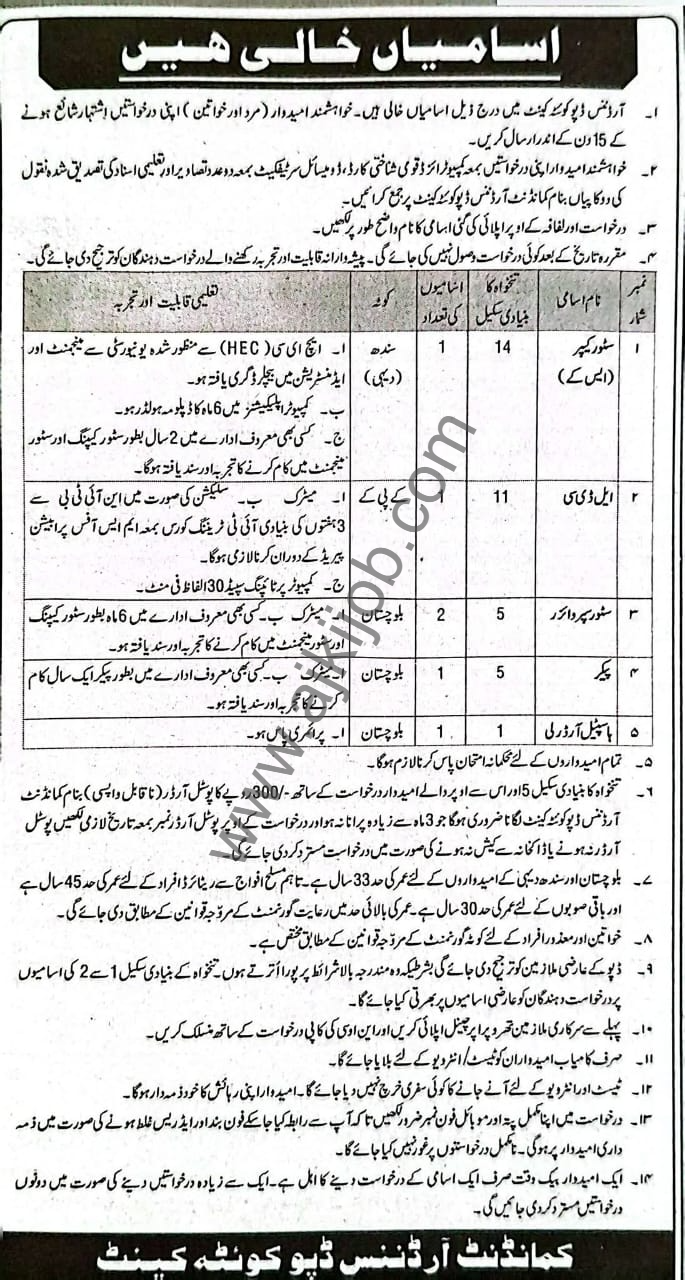 اسامیاں خالی ھیں
۱۔ آرڈننس ڈپو کوئٹہ کینٹ میں درج ذیل اسامیاں خالی ہیں۔ خواہشمند امیدوار (مرد اور خواتین) اپنی درخواستیں اشتہار شائع ہونے
کے 15 دن کے اندر ارسال کریں۔
۲۔ خواہشمند امیدوار اپنی درخواستیں بمعہ کمپیوٹرائزڈ قومی شناختی کارڈ، ڈومیسائل سرٹیفکیٹ بمعہ دو عدد تصاویر اور تعلیمی اسناد کی تصدیق شدہ نقول
کی دو کاپیاں بنام کمانڈنٹ آرڈننس ڈپو کوئٹہ کینٹ پر جمع کرائیں۔
۳۔ درخواست اور لفافہ کے اوپر اپلائی کی گئی اسامی کا نام واضح طور پر لکھیں۔
۴۔ مقررہ تاریخ کے بعد کوئی درخواست وصول نہیں کی جائے گی۔ پیشہ وارانہ قابلیت اور تجربہ رکھنے والے درخواست دہندگان کو ترجیح دی جائے گی۔
نمبر شمار نام اسامی تنخواہ کا بنیادی سکیل اسامیوں کی تعداد کوٹہ تعلیمی قابلیت اور تجربہ
۱ سٹور کیپر (ایس کے) 14 1 سندھ (دیہی) ا۔ ایچ ای سی (HEC) سے منظور شدہ یونیورسٹی سے مینجمنٹ اور
ایڈمنسٹریشن میں بیچلر ڈگری یافتہ ہو۔
ب۔ کمپیوٹر اپلیکیشنز میں 6 ماہ کا ڈپلومہ ہولڈر ہو۔
ج۔ کسی بھی معروف ادارے میں 2 سال بطور سٹور کیپنگ اور سٹور
مینجمنٹ میں کام کرنے کا تجربہ اور سند یافتہ ہوگا۔
۲ ایل ڈی سی 11 1 کے پی کے ا۔ میٹرک ب۔ سلیکشن کی صورت میں این آئی ٹی بی سے
3 ہفتوں کی بنیادی آئی ٹی ٹریننگ کورس بمعہ ایم ایس آفس پرابیشن
پیریڈ کے دوران کرنا لازمی ہوگا۔
ج۔ کمپیوٹر پر ٹائپنگ سپیڈ 30 الفاظ فی منٹ۔
۳ سٹور سپروائزر 5 2 بلوچستان ا۔ میٹرک ب۔ کسی بھی معروف ادارے میں 6 ماہ بطور سٹور کیپنگ
اور سٹور مینجمنٹ میں کام کرنے کا تجربہ اور سند یافتہ ہو۔
۴ پیکر 5 1 بلوچستان ا۔ میٹرک ب۔ کسی بھی معروف ادارے میں بطور پیکر ایک سال کام
کرنے کا تجربہ اور سند یافتہ ہو۔
۵ ہاسپٹیل آرڈرلی 1 1 بلوچستان ا۔ پرائمری پاس ہو۔
۵۔ تمام امیدواروں کے لئے محکمانہ امتحان پاس کرنا لازم ہوگا۔
۶۔ تنخواہ کا بنیادی سکیل 5 اور اس سے اوپر والے امیدوار درخواست کے ساتھ -/300 روپے کا پوسٹل آرڈر (ناقابل واپسی) بنام کمانڈنٹ
آرڈننس ڈپو کوئٹہ کینٹ لگانا ضروری ہوگا جو 3 ماہ سے زیادہ پرانا نہ ہو اور درخواست کے اوپر پوسٹل آرڈر نمبر بمعہ تاریخ لازمی لکھیں پوسٹل
آرڈر نہ ہونے یا ڈاکخانہ سے کیش نہ ہونے کی صورت میں درخواست مسترد کر دی جائے گی۔
۷۔ بلوچستان اور سندھ دیہی کے امیدواروں کے لئے عمر کی حد 33 سال ہے۔ تاہم مسلح افواج سے ریٹائرڈ افراد کے لئے عمر کی حد 45 سال ہے
اور باقی صوبوں کے لئے عمر کی حد 30 سال ہے۔ عمر کی بالائی حد میں رعایت گورنمنٹ کے مروجہ قوانین کے مطابق دی جائے گی۔
۸۔ خواتین اور معذور افراد کے لئے کوٹہ گورنمنٹ کے مروجہ قوانین کے مطابق مختص ہے۔
۹۔ ڈپو کے عارضی ملازمین کو ترجیح دی جائے گی بشرطیکہ وہ مندرجہ بالا شرائط پر پورا اُترتے ہوں۔ تنخواہ کے بنیادی سکیل 1 سے 2 کی اسامیوں
پر درخواست دہندگان کو عارضی اسامیوں پر بھرتی کیا جائے گا۔
۱۰۔ پہلے سے سرکاری ملازمین تھرو پراپر چینل اپلائی کریں اور این او سی کی کاپی درخواست کے ساتھ منسلک کریں۔
۱۱۔ صرف کامیاب امیدواران کو ٹیسٹ/انٹرویو کے لئے بلایا جائے گا۔
۱۲۔ ٹیسٹ اور انٹرویو کے لئے آنے جانے کا کوئی سفری خرچ نہیں دیا جائے گا۔ امیدوار اپنی رہائش کا خود ذمہ دار ہوگا۔
۱۳۔ درخواست میں اپنا مکمل پتہ اور موبائل فون نمبر ضرور لکھیں تاکہ آپ سے رابطہ کیا جا سکے فون بند اور ایڈریس غلط ہونے کی صورت میں ذمہ
داری امیدوار پر ہوگی۔ نامکمل درخواستوں پر غور نہیں کیا جائے گا۔
۱۴۔ ایک امیدوار بیک وقت صرف ایک اسامی کے درخواست دینے کا اہل ہے۔ ایک سے زیادہ درخواستیں دینے کی صورت میں دونوں
درخواستیں مسترد کر دی جائیں گی۔
کمانڈنٹ آرڈننس ڈپو کوئٹہ کینٹ
www.ajkjob.com